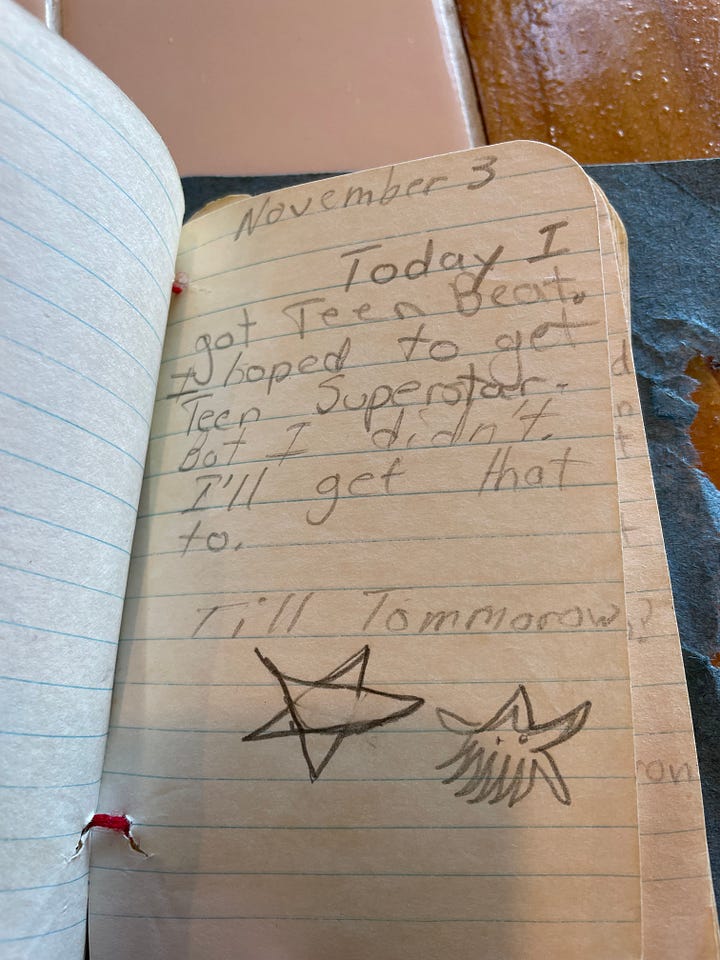 November 3
Today I
got Teen Beat.
I hoped to get
Teen Superstar.
But I didn't.
I'll get that
to.
Till Tommorow
d
n
t
on